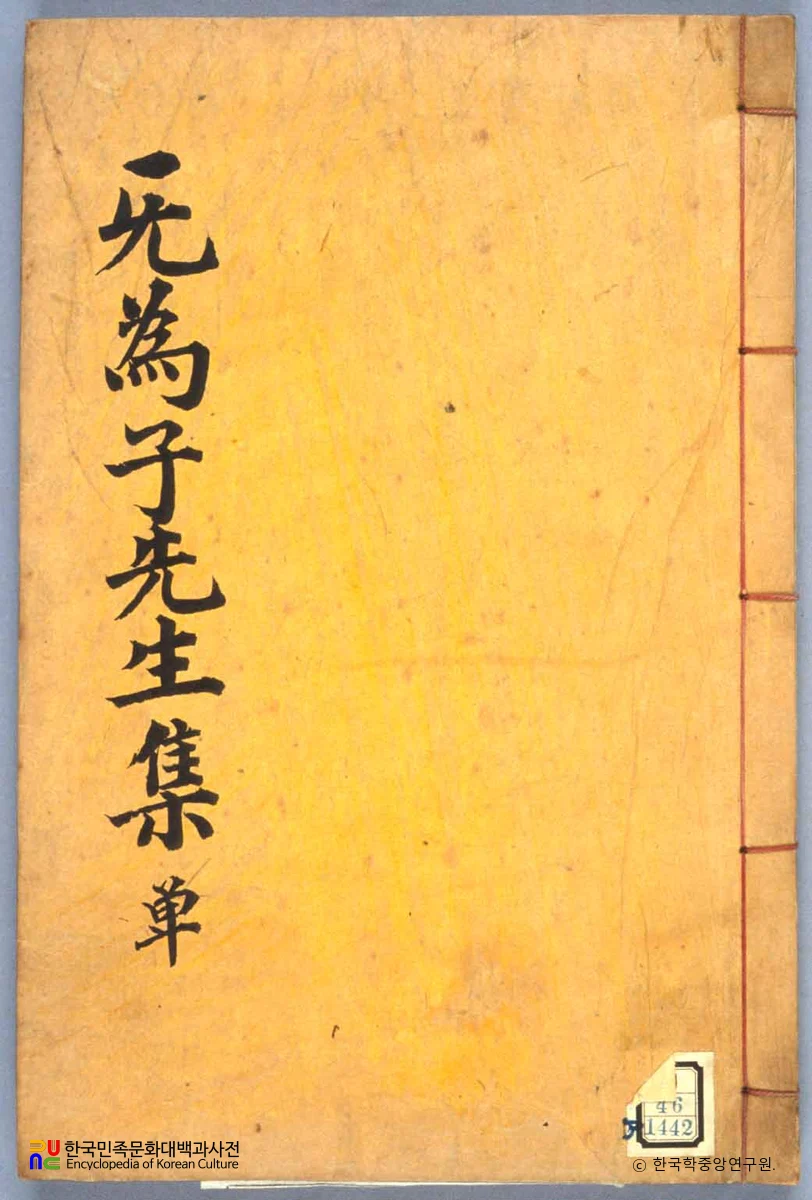 无為子先生集 単
46
1442
한국민족문화대백과사전
Encyclopedia of Korean Culture
© 한국학중앙연구원.